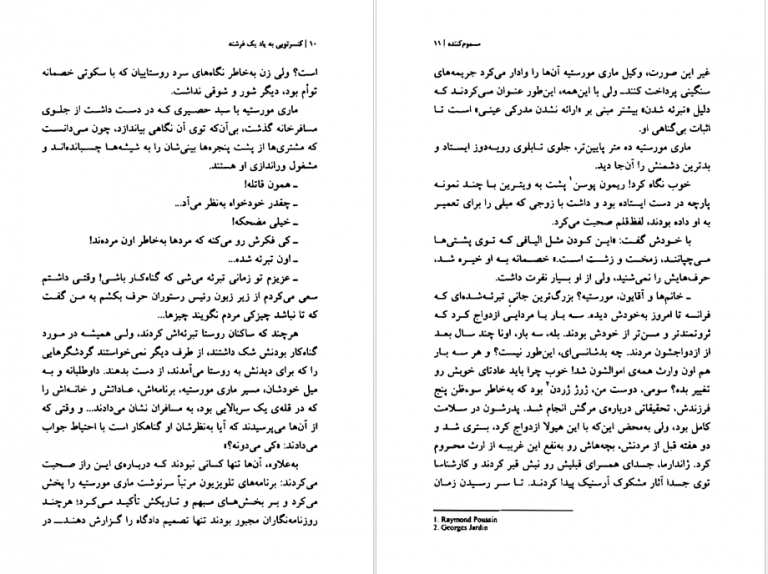 ۱۰ | کنسرتویی به یاد یک فرشته
است؟ ولی زن به‌خاطر نگاه‌های سرد روستاییان که با سکوتی خصمانه
توأم بود، دیگر شور و شوقی نداشت.
ماری مورستیه با سبد حصیری که در دست داشت از جلوی
مسافرخانه گذشت، بی‌آن‌که توی آن نگاهی بیاندازد، چون می‌دانست
که مشتری‌ها از پشت پنجره‌ها بینی‌شان را به شیشه‌ها چسبانده‌اند و
مشغول وراندازی او هستند.
ـ همون قاتله!
ـ چقدر خودخواه به‌نظر می‌آد...
ـ خیلی مضحکه!
ـ کی فکرش رو می‌کنه که مردها به‌خاطر اون مرده‌ند!
ـ اون تبرئه شده...
ـ عزیزم تو زمانی تبرئه می‌شی که گناه‌کار باشی! وقتی داشتم
سعی می‌کردم از زیر زبون رئیس رستوران حرف بکشم به من گفت
که تا نباشد چیزکی مردم نگویند چیزها...
هرچند که ساکنان روستا تبرئه‌اش کردند، ولی همیشه در مورد
گناه‌کار بودنش شک داشتند، از طرف دیگر نمی‌خواستند گردشگرهایی
را که برای دیدنش به روستا می‌آمدند، از دست بدهند. داوطلبانه و به
میل خودشان، مسیر ماری مورستیه، برنامه‌اش، عاداتش و خانه‌اش را
که در قله‌ی یک سربالایی بود، به مسافران نشان می‌دادند... و وقتی که
از آن‌ها می‌پرسیدند که آیا به‌نظرشان او گناهکار است با احتیاط جواب
می‌دادند: «کی می‌دونه؟»
به‌علاوه، آن‌ها تنها کسانی نبودند که درباره‌ی این راز صحبت
می‌کردند: برنامه‌های تلویزیون مرتباً سرنوشت ماری مورستیه را پخش
می‌کرد و بر بخش‌های مبهم و تاریکش تأکید می‌کرد؛ هرچند
روزنامه‌نگاران مجبور بودند تنها تصمیم دادگاه را گزارش دهند ـ در
مسموم‌کننده | ۱۱
غیر این صورت، وکیل ماری مورستیه آن‌ها را وادار می‌کرد جریمه‌های
سنگینی پرداخت کنند ـ ولی با این‌همه، این‌طور عنوان می‌کردند که
دلیل «تبرئه شدن» بیشتر مبنی بر «ارائه نشدن مدرکی عینی» است تا
اثبات بی‌گناهی او.
ماری مورستیه ده متر پایین‌تر، جلوی تابلوی رویه‌دوز ایستاد و
بدترین دشمنش را آن‌جا دید.
خوب نگاه کرد! ریمون پوسن۱ پشت به ویترین با چند نمونه
پارچه در دست ایستاده بود و داشت با زوجی که مبلی را برای تعمیر
به او داده بودند، لفظ‌قلم صحبت می‌کرد.
با خودش گفت: «این کودن مثل الیافی که توی پشتی‌ها
می‌چپانند، زمخت و زشت است.» خصمانه به او خیره شد،
حرف‌هایش را نمی‌شنید، ولی از او بسیار نفرت داشت.
ـ خانم‌ها و آقایون، مورستیه؟ بزرگ‌ترین جانیِ تبرئه‌شده‌ای که
فرانسه تا امروز به‌خودش دیده. سه بار با مردایی ازدواج کرد که
ثروتمندتر و مسن‌تر از خودش بودند. بله، سه بار، اونا چند سال بعد
از ازدواجشون مردند. چه بدشانسی‌ای، این‌طور نیست؟ و هر سه بار
هم اون وارث همه‌ی اموالشون شد! خوب چرا باید عادتای خویش رو
تغییر بده؟ سومی، دوست من، ژرژ ژردن۲ بود که به‌خاطر سوءظن پنج
فرزندش، تحقیقاتی درباره‌ی مرگش انجام شد. پدرشون در سلامت
کامل بود، ولی به‌محض این‌که با این هیولا ازدواج کرد، بستری شد و
دو هفته قبل از مردنش، بچه‌هاش رو به‌نفع این غریبه از ارث محروم
کرد. ژاندارما، جسدای همسرای قبلیش رو نبش قبر کردند و کارشناسا
توی جسدا آثار مشکوک آرسنیک پیدا کردند. تا سر رسیدن زمان
1. Raymond Poussin
2. Georges Jardin